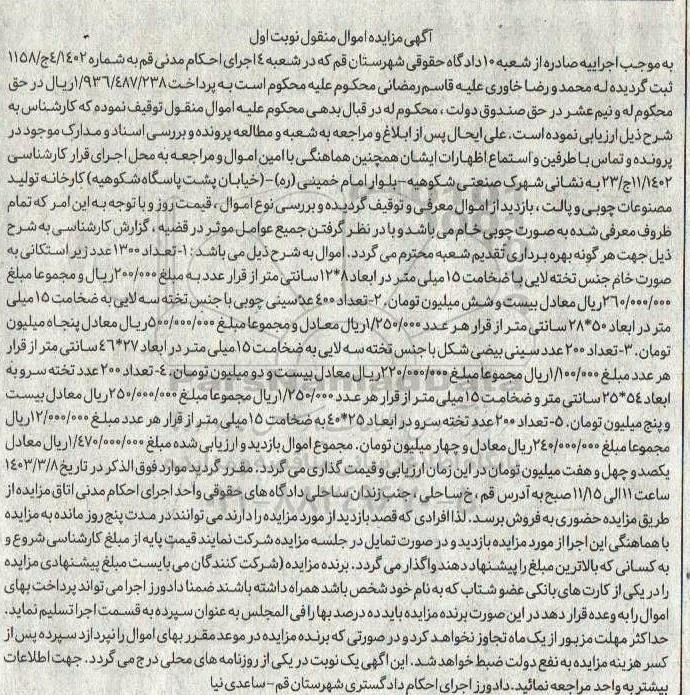 آگهی مزایده اموال منقول نوبت اول
به موجب اجراییه صادره از شعبه ۱۰ دادگاه حقوقی شهرستان قم که در شعبه ۴ اجرای احکام مدنی قم به شماره ۴/۱۴۰۲ج/۱۱۵۸
ثبت گردیده له محمد و رضا خاوری علیه قاسم رمضانی محکوم علیه محکوم است به پرداخت ۱/۹۳۶/۴۸۷/۲۳۸ریال در حق
محکوم له و نیم عشر در حق صندوق دولت ، محکوم له در قبال بدهی محکوم علیه اموال منقول توقیف نموده که کارشناس به
شرح ذیل ارزیابی نموده است. علی ایحال پس از ابلاغ و مراجعه به شعبه و مطالعه پرونده و بررسی اسناد و مدارک موجود در
پرونده و تماس با طرفین و استماع اظهارات ایشان همچنین هماهنگی با امین اموال و مراجعه به محل اجرای قرار کارشناسی
۱۱/۱۴۰۲ج/۲۳ به نشانی شهرک صنعتی شکوهیه-بلوار امام خمینی (ره)-(خیابان پشت پاسگاه شکوهیه) کارخانه تولید
مصنوعات چوبی و پالت ، بازدید از اموال معرفی و توقیف گردیده و بررسی نوع اموال ، قیمت روز و با توجه به این امر که تمام
ظروف معرفی شده به صورت چوبی خام می باشد و با در نظر گرفتن جمیع عوامل موثر در قضیه ، گزارش کارشناسی به شرح
ذیل جهت هر گونه بهره برداری تقدیم شعبه محترم می گردد. اموال به شرح ذیل می باشد: ۱-تعداد ۱۳۰۰ عدد زیر استکانی به
صورت خام جنس تخته لایی با ضخامت ۱۵میلی متر در ابعاد ۸*۱۲سانتی متر از قرار عدد به مبلغ ۲۰۰/۰۰۰ریال و مجموعا مبلغ
۲۶۰/۰۰۰/۰۰۰ریال معادل بیست و شش میلیون تومان. ۲-تعداد ۴۰۰ عدد سینی چوبی با جنس تخته سه لایی به ضخامت ۱۵میلی
متر در ابعاد ۵۰*۲۸ سانتی متر از قرار هر عدد ۱/۲۵۰/۰۰۰ریال معادل و مجموعا مبلغ ۵۰۰/۰۰۰/۰۰۰ریال معادل پنجاه میلیون
تومان. ۳-تعداد ۲۰۰ عدد سینی بیضی شکل با جنس تخته سه لایی به ضخامت ۱۵میلی متر در ابعاد ۲۷*۴۶سانتی متر از قرار
هر عدد مبلغ ۱/۱۰۰/۰۰۰ریال مجموعا مبلغ ۲۲۰/۰۰۰/۰۰۰ریال معادل بیست و دو میلیون تومان. ۴-تعداد ۲۰۰ عدد تخته سرو به
ابعاد ۵۴*۲۵ سانتی متر و ضخامت ۱۵میلی متر از قرار هر عدد ۱/۲۵۰/۰۰۰ریال مجموعا مبلغ ۲۵۰/۰۰۰/۰۰۰ریال معادل بیست
و پنج میلیون تومان. ۵-تعداد ۲۰۰ عدد تخته سرو در ابعاد ۲۵*۴۰ به ضخامت ۱۵میلی متر از قرار هر عدد مبلغ ۱۲/۰۰۰/۰۰۰ریال
مجموعا مبلغ ۲۴۰/۰۰۰/۰۰۰ریال معادل و چهار میلیون تومان. مجموع اموال بازدید و ارزیابی شده مبلغ ۱/۴۷۰/۰۰۰/۰۰۰ریال معادل
یکصد و چهل و هفت میلیون تومان در این زمان ارزیابی و قیمت گذاری می گردد. مقرر گردید موارد فوق الذکر در تاریخ ۱۴۰۳/۳/۸
ساعت ۱۱الی ۱۱/۱۵صبح به آدرس قم ، خ ساحلی ، جنب زندان ساحلی دادگاه های حقوقی واحد اجرای احکام مدنی اتاق مزایده از
طریق مزایده حضوری به فروش برسد. لذا افرادی که قصد بازدید از مورد مزایده را دارند می توانند در مدت پنج روز مانده به مزایده
با هماهنگی این اجرا از مورد مزایده بازدید و در صورت تمایل در جلسه مزایده شرکت نمایند قیمت پایه از مبلغ کارشناسی شروع و
به کسانی که بالاترین مبلغ را پیشنهاد دهند واگذار می گردد. برنده مزایده (شرکت کنندگان می بایست مبلغ پیشنهادی مزایده
را در یکی از کارت های بانکی عضو شتاب که به نام خود شخص باشد همراه داشته باشند ضمنا دادورز اجرا می تواند پرداخت بهای
اموال را به وعده قرار دهد در این صورت برنده مزایده باید ده درصد بها را فی المجلس به عنوان سپرده به قسمت اجرا تسلیم نماید.
حداکثر مهلت مزبور از یک ماه تجاوز نخواهد کرد و در صورتی که برنده مزایده در موعد مقرر بهای اموال را نپردازد سپرده پس از
کسر هزینه مزایده به نفع دولت ضبط خواهد شد. این اگهی یک نوبت در یکی از روزنامه های محلی درج می گردد. جهت اطلاعات
بیشتر به واحد مراجعه نمائید. دادورز اجرای احکام دادگستری شهرستان قم-ساعدی نیا